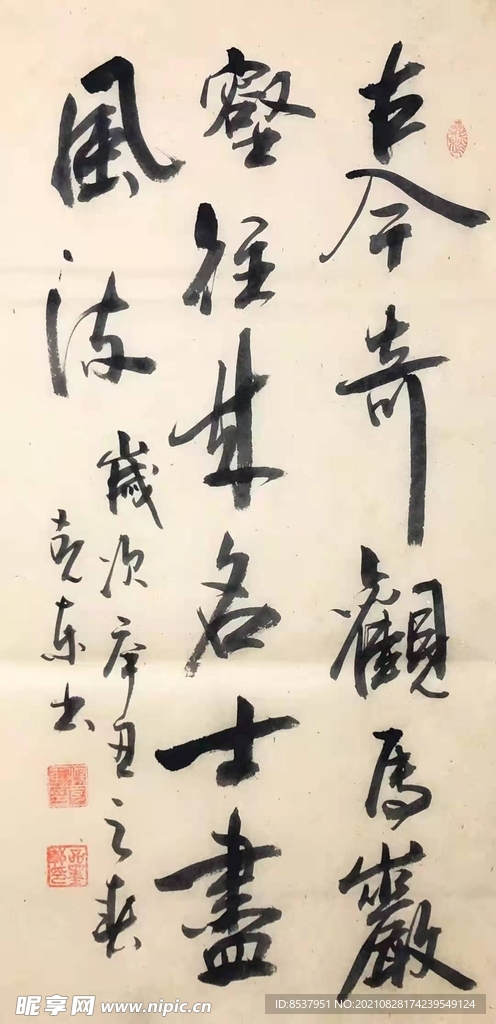 古今奇觀馬巖
壑往來名士盡
風流
歲次辛丑之春
克東書
昵享网 www.nipic.cn
ID:8537951 NO:20210828174239549124